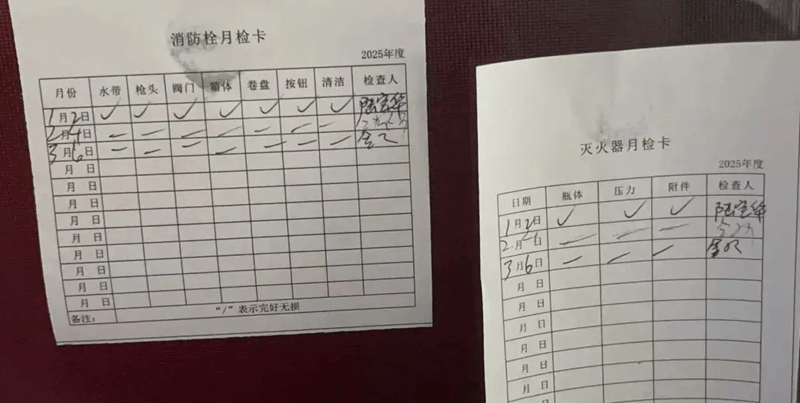 消防栓月检卡
2025年度
月份 水带 枪头 阀门 箱体 卷盘 按钮 清洁 检查人
1月2日 ✓ ✓ ✓ ✓ ✓ ✓ ✓
2月4日 — — — — — — —
3月6日 — — — — — — —
月 日
月 日
月 日
月 日
月 日
月 日
月 日
月 日
月 日
备注: "/"表示完好无损
灭火器月检卡
2025年度
日期 瓶体 压力 附件 检查人
1月2日 ✓ ✓ ✓
2月4日 — — —
3月6日 — — —
月 日
月 日
月 日
月 日
月 日
月 日
月 日